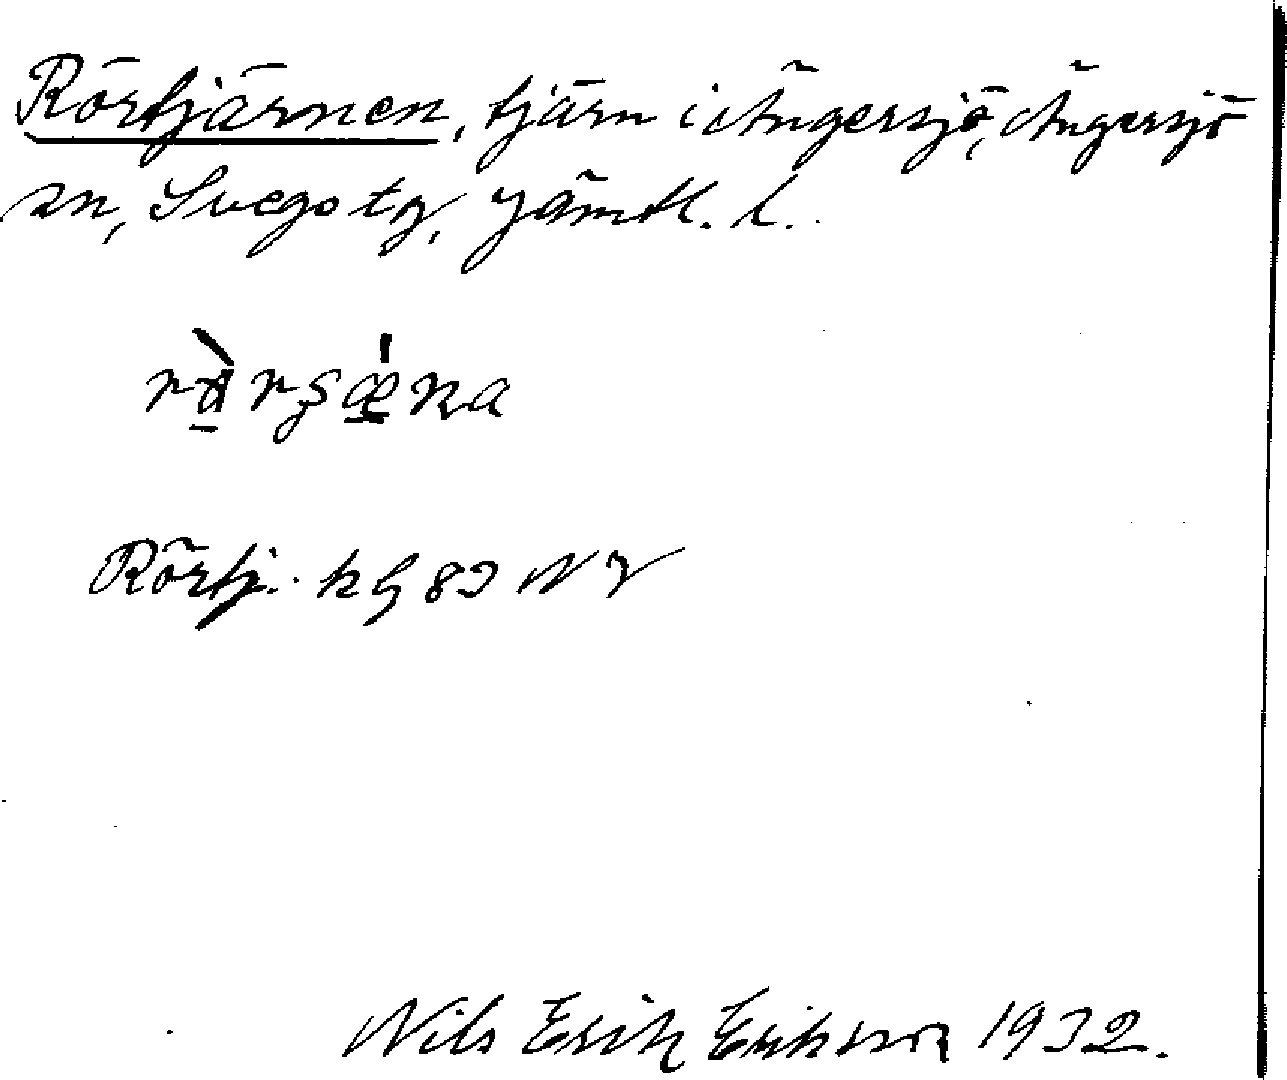 Rörtjärnen, tjärn i Ängersjö, Ängersjö
sn, Svegs tg, Jämtl. l.
Rörtj. kg 83 NV
Nils Erik Eriksson 1932.